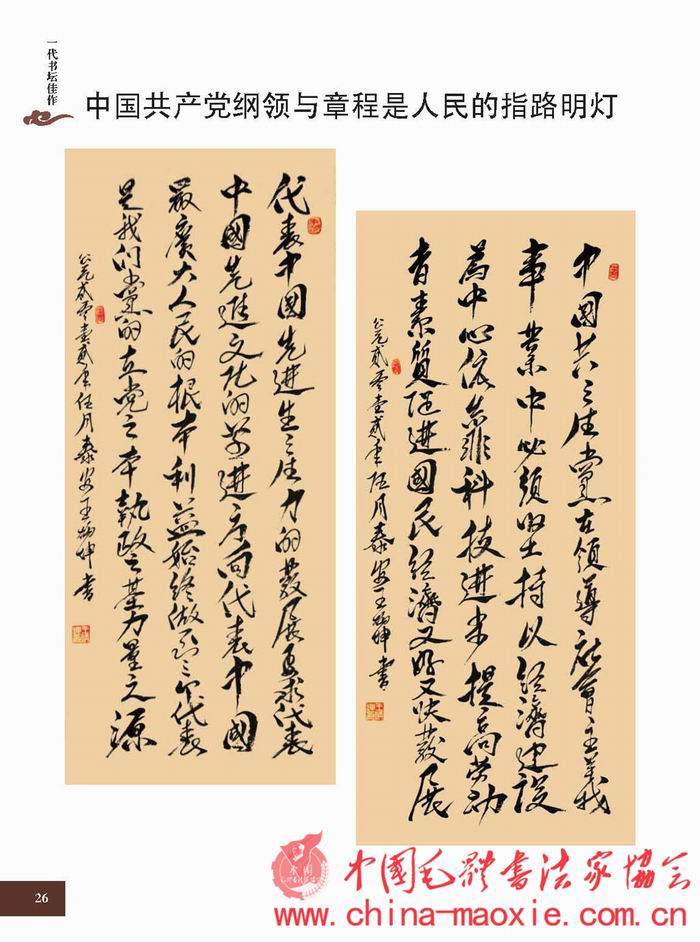 一代书坛佳作
中国共产党纲领与章程是人民的指路明灯
代表中國先进生产力的發展要求代表
中國先進文化的前進方向代表中國
最廣大人民的根本利益始终做到三个代表
是我们黨的立党之本執政之基力量之源
公元贰零壹贰年伍月泰安王炳坤書
中國共产黨在领導社會主義
事業中必须坚持以经濟建設
為中心依靠科技進步提高劳动
者素質促進國民经濟又好又快發展
公元贰零壹贰年伍月泰安王炳坤書
26
中國毛體書法家協会
www.china-maoxie.com